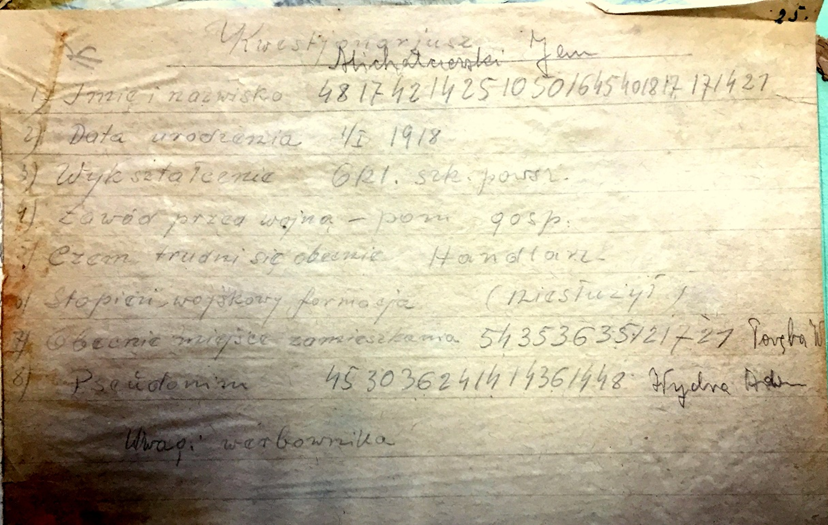 25.
Kwestjonarjusz
Michalczewski Jan
1) Imię i nazwisko 48 17 42 14 25 10 50 16 45 40 18 17 17 14 21
2) Data urodzenia 1/I 1918
3) Wykształcenie 6 kl. szk. powsz.
4) Zawód przed wojną – pom gosp.
5) Czem trudni się obecnie Handlarz.
6) Stopień wojskowy formacja (niesłużył)
7) Obecnie miejsce zamieszkania 54 35 36 35 12 17 21 Poręba W
8) Pseudonim 45 30 36 24 14 14 36 14 48 Hydra Adam
Uwagi werbownika